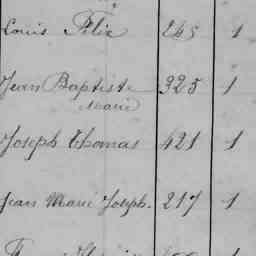 Louis Félix 265 1
Jean Baptiste 325 1
Marie
Joseph Thomas 421 1
Jean Marie Joseph. 217 1